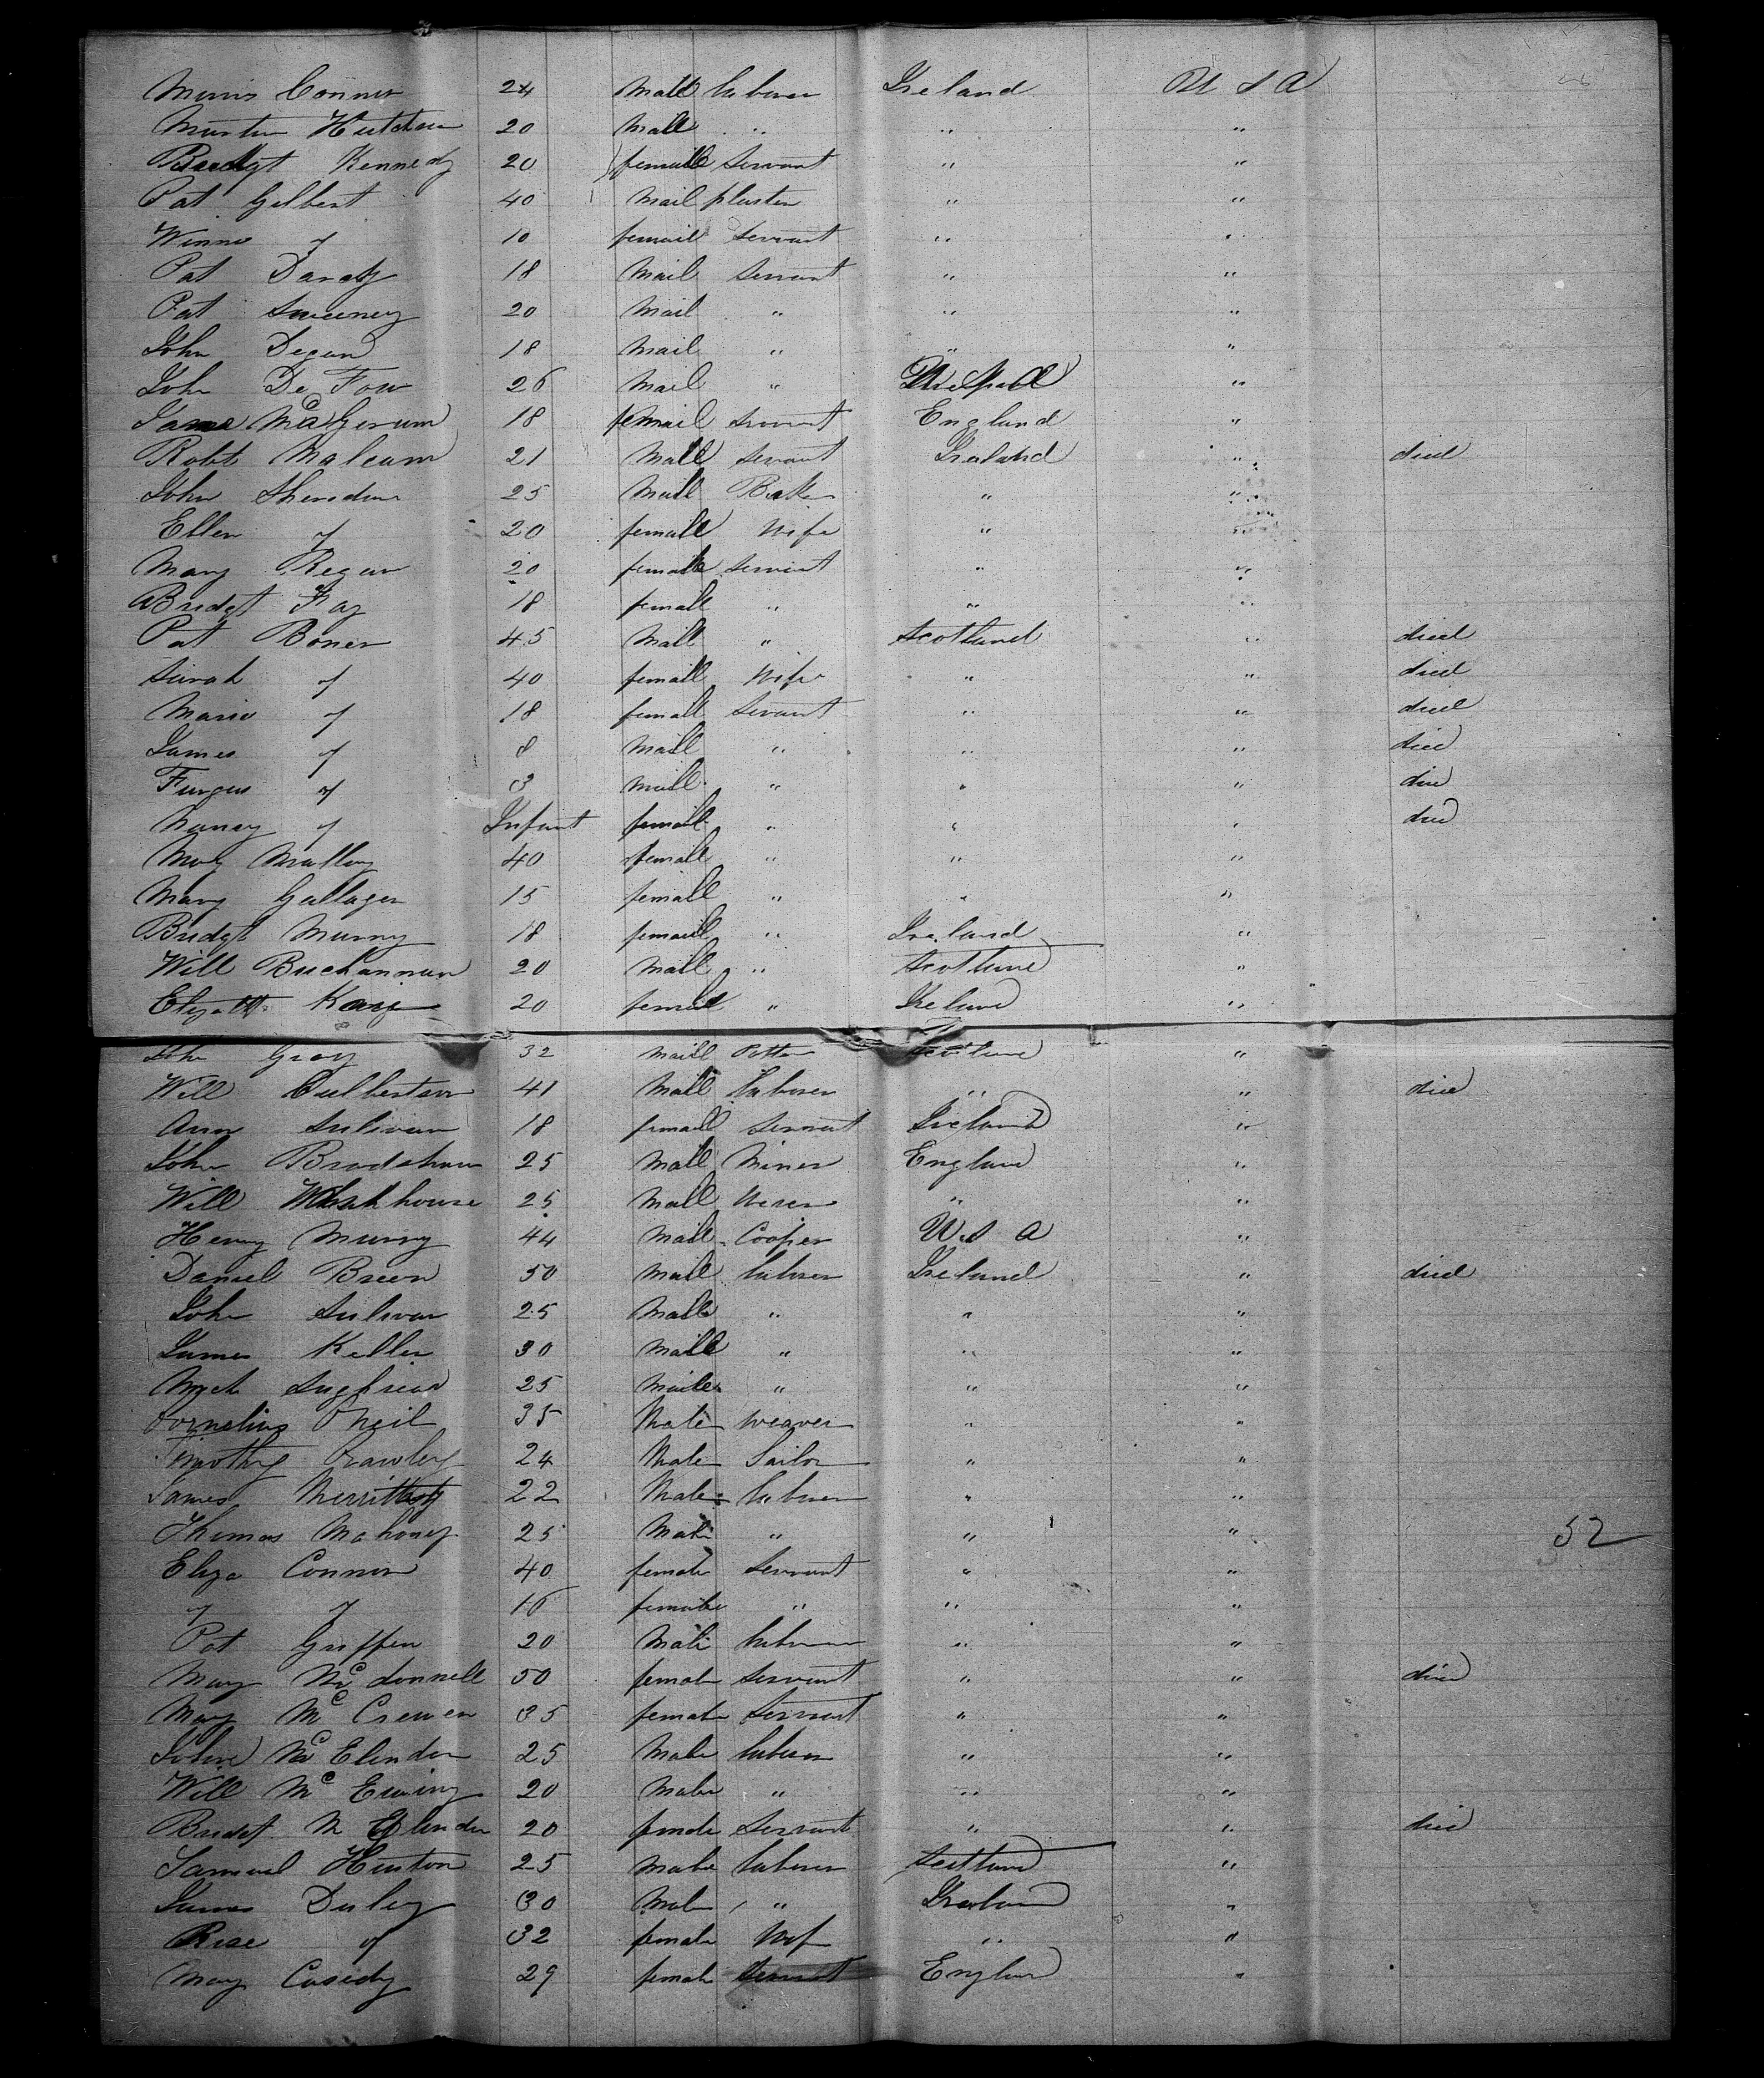 Morris Conner 24 Male Laborer Ireland U S A
Martin Hutchen 20 Male " " "
Bridgt Kennedy 20 female Servant " "
Pat Gilbert 40 Mail plaster " "
Winne " 10 femail Servant " "
Pat Darcy 18 Mail Servant " "
Pat Sweeney 20 Mail " " "
John Degan 18 Mail " " "
John De Fow 26 Mail " "
Mc Gerum 18 femail Servant England "
Robt Malcum 21 Male Servant Ireland " died
John Sheredan 25 Male Baker " "
Ellen " 20 female Wife " "
Mary Regan 20 female Servant " "
Bridgt Fay 18 female " " "
Pat Boner 45 Male " Scotland " died
Sarah " 40 female Wife " " died
Maria " 18 female Servant " " died
James " 8 Male " " " died
Furgus " 3 Male " " " died
Nancy " Infant female " " " died
Mary Malley 40 female " " "
Mary Gallager 15 female " " "
Bridgt Murry 18 female " Ireland "
Will Buchannan 20 Male " Scotland "
Kay 20 female " Ireland "
John Gray 32 Male Potter Scotland "
Will Culbertson 41 Male Laborer " " died
Ann Sulivan 18 female Servant Ireland "
John Bradshaw 25 Male Miner England "
Will 25 Male " "
Henry Murry 44 Male Cooper U S A "
Daniel Breen 50 Male Laborer Ireland " died
John Sulivan 25 Male " " "
James Keller 30 Male " " "
Mych 25 Male " " "
Cornelius O'Neil 35 Male Weaver " "
Timothy Crawley 24 Male Sailor " "
James 22 Male Laborer " "
Thomas Mahoney 25 Male " " " 52
Eliza Connor 40 female Servant " "
" " 16 female " " "
Pat Griffen 20 Male Laborer " "
Mary Mc donnell 50 female Servant " " died
Mary Mc Crewen 35 female Servant " "
John Mc Elendon 25 Male Laborer " "
Will Mc Ewing 20 Male " " "
Bridet M Elender 20 female Servant " " died
Samuel Huston 25 Male Laborer Scotland "
James Duley 30 Male " Ireland "
Rose " 32 female Wife " "
Mary Casidy 29 female Servant England "